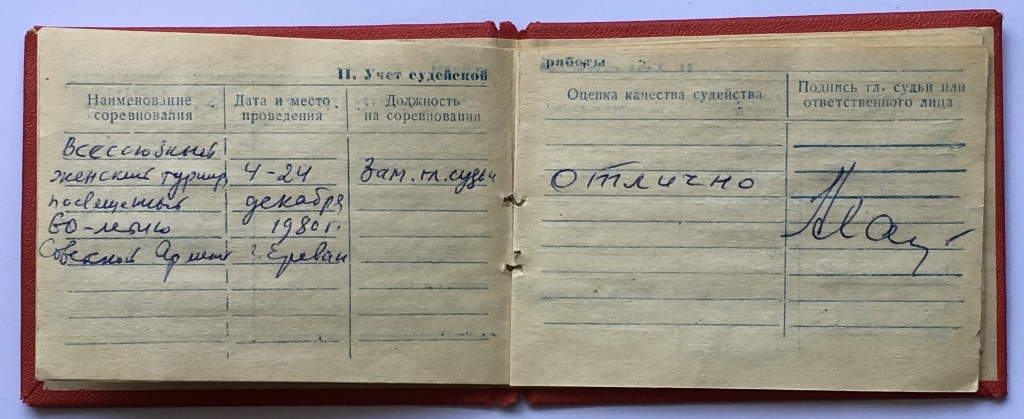 II. Учет судейской
работы
Наименование соревнования
Дата и место проведения
Должность на соревновании
Оценка качества судейства
Подпись гл. судьи или ответственного лица
Всесоюзный
женский турнир
посвещенный
60-летию
Советской Армении
4-24
декабря
1980 г.
г. Ереван
Зам. гл. судьи
отлично